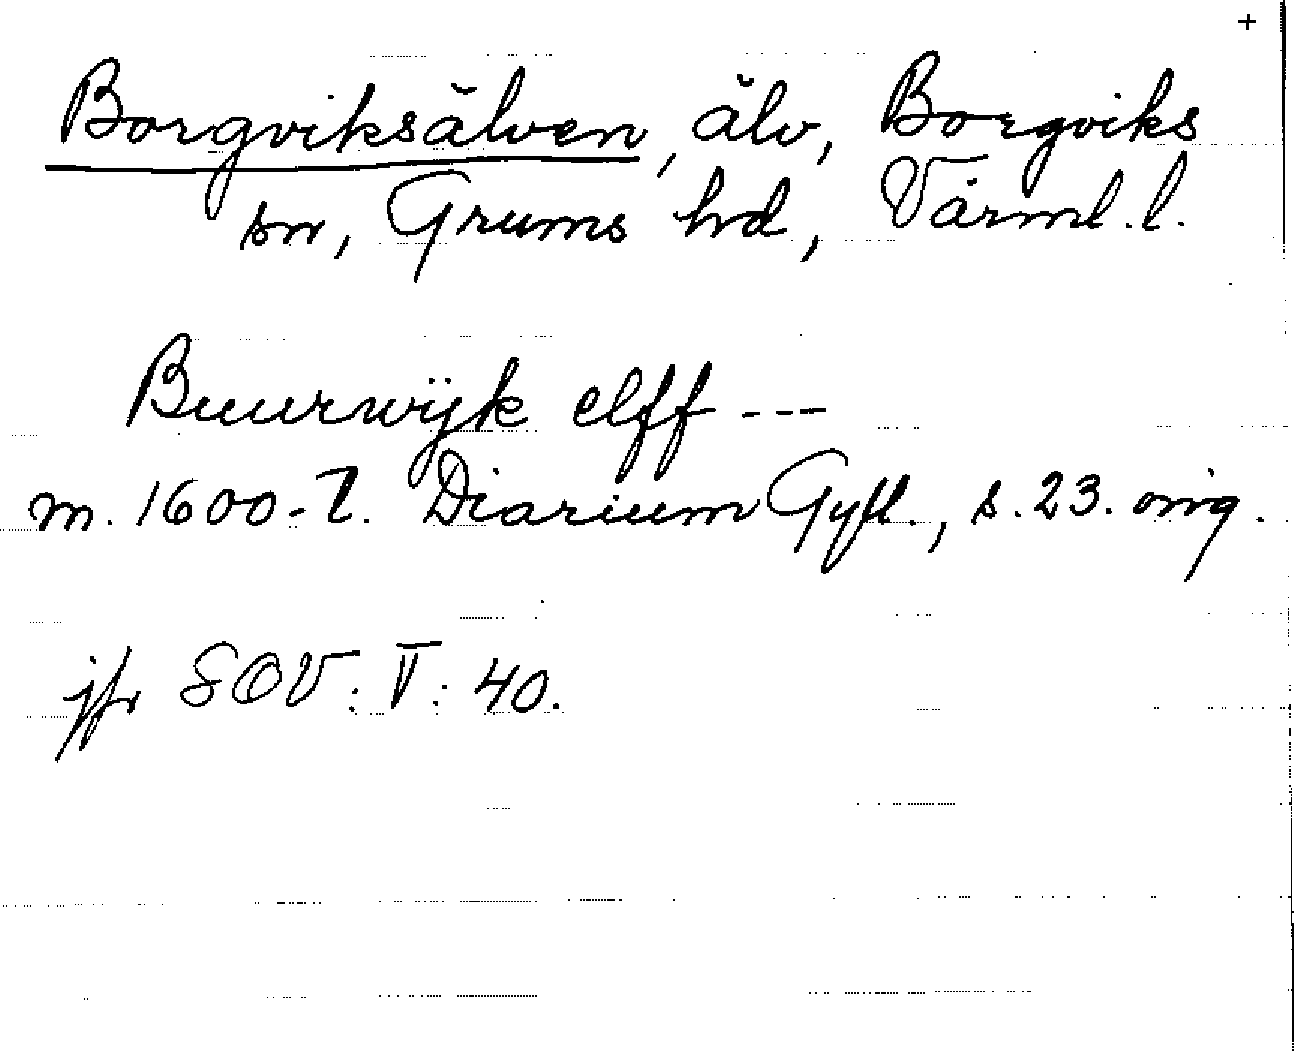 +
Borgviksälven, älv, Borgviks
sn, Grums hd, Värml. l.
Buurwÿk elff ---
m. 1600-t. Diarium Gyll., s. 23. orig.
jfr SOV: V: 40.